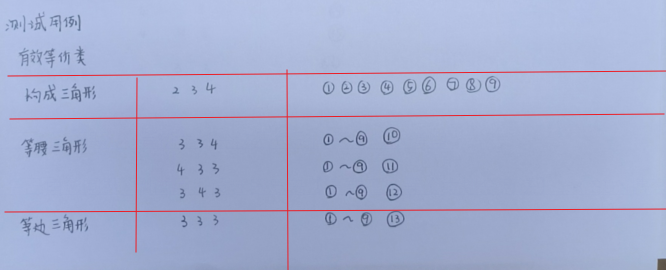 测试用例
有效等价类
构成三角形 2 3 4 ① ② ③ ④ ⑤ ⑥ ⑦ ⑧ ⑨
等腰三角形 3 3 4 ①~⑨ ⑩
4 3 3 ①~⑨ ⑪
3 4 3 ①~⑨ ⑫
等边三角形 3 3 3 ①~⑨ ⑬